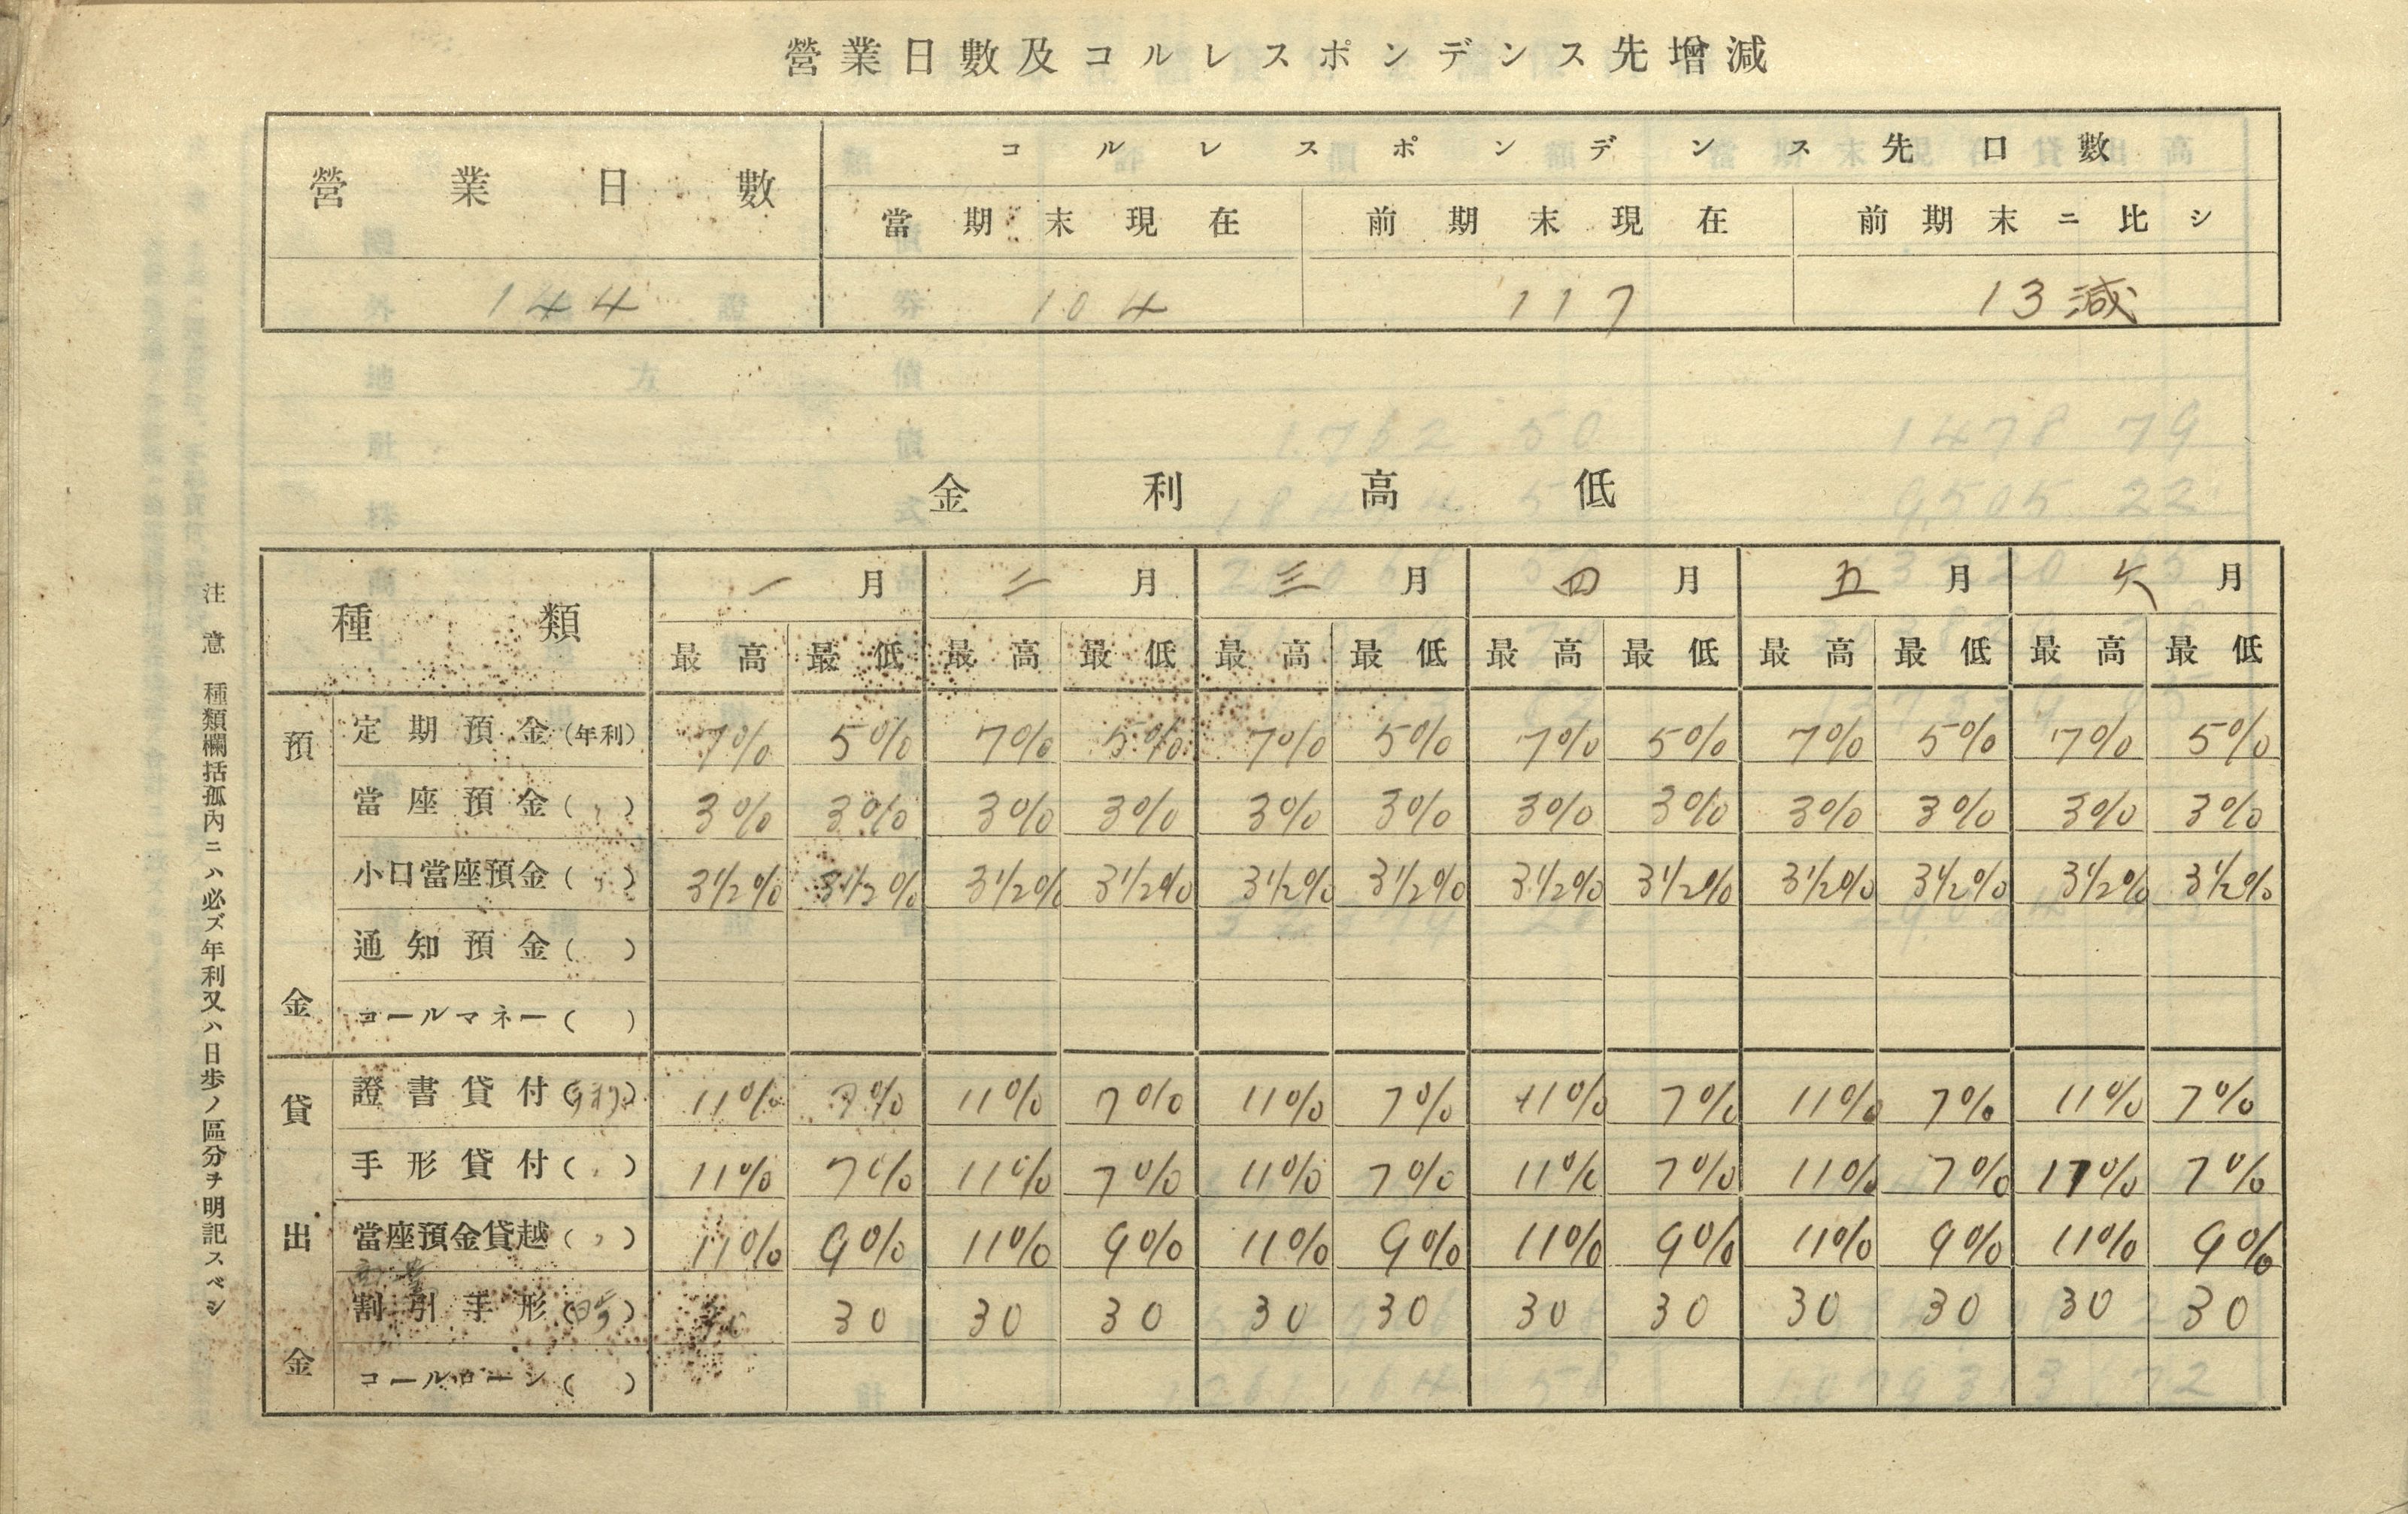 營業日數及コルレスポンデンス先增減
營業日數 コルレスポンデンス先口數
當期末現在 前期末現在 前期末ニ比シ
144 104 117 13減
金利高低
種類 一月 二月 三月 四月 五月 六月
最高 最低 最高 最低 最高 最低 最高 最低 最高 最低 最高 最低
預金
定期預金(年利) 7% 5% 7% 5% 7% 5% 7% 5% 7% 5% 7% 5%
當座預金(〃) 3% 3% 3% 3% 3% 3% 3% 3% 3% 3% 3% 3%
小口當座預金(〃) 3½% 3½% 3½% 3½% 3½% 3½% 3½% 3½% 3½% 3½% 3½% 3½%
通知預金( )
コールマネー( )
貸出金
證書貸付(年利) 11% 7% 11% 7% 11% 7% 11% 7% 11% 7% 11% 7%
手形貸付(〃) 11% 7% 11% 7% 11% 7% 11% 7% 11% 7% 11% 7%
當座預金貸越(〃) 11% 9% 11% 9% 11% 9% 11% 9% 11% 9% 11% 9%
割引手形(日歩) 30 30 30 30 30 30 30 30 30 30 30 30
コールローン( )
注意 種類欄括孤內ニハ必ズ年利又ハ日步ノ區分ヲ明記スベシ